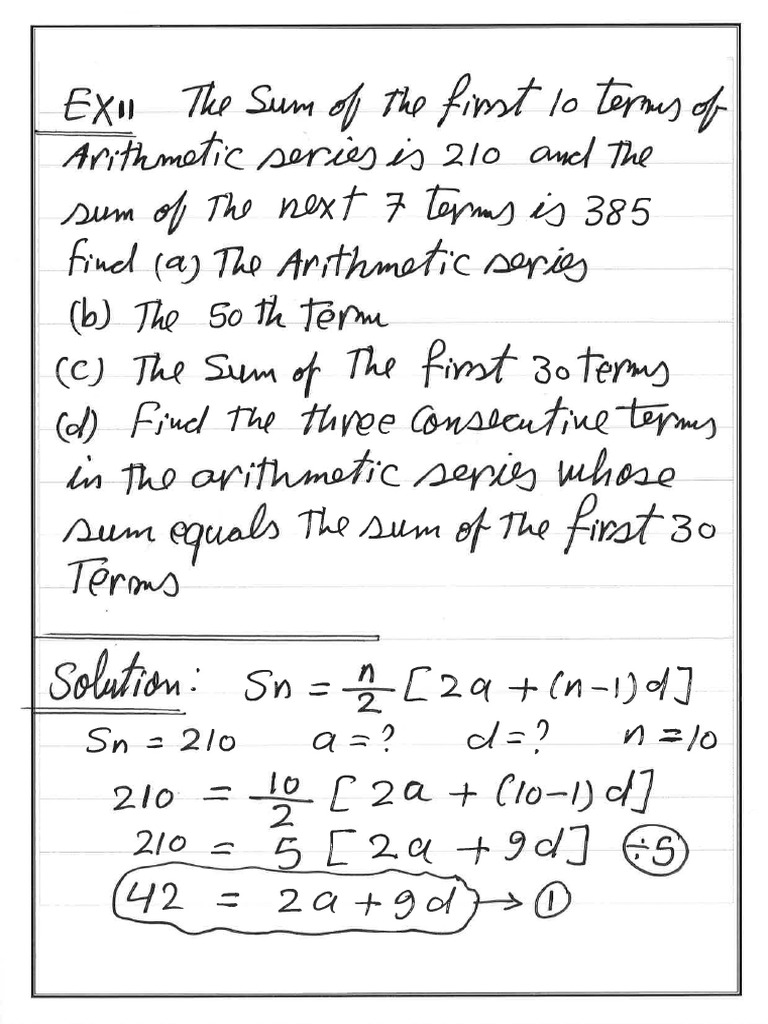 EX11 The Sum of the first 10 terms of
Arithmetic series is 210 and the
sum of The next 7 terms is 385
find (a) The Arithmetic series
(b) The 50th term
(c) The Sum of The first 30 terms
(d) Find The three consecutive terms
in The arithmetic series whose
sum equals The sum of The first 30
Terms
Solution: Sn = n/2 [2a + (n-1)d]
Sn = 210 a = ? d = ? n = 10
210 = 10/2 [2a + (10-1)d]
210 = 5 [2a + 9d] ÷5
42 = 2a + 9d → 1